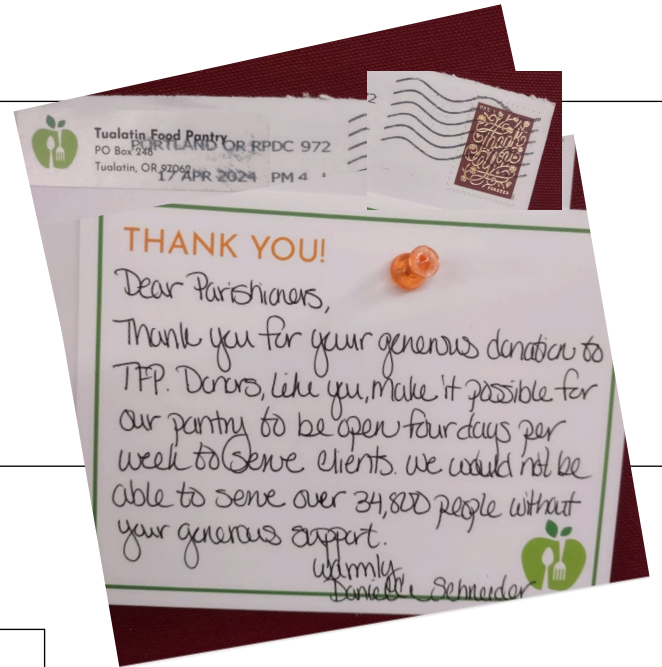 Tualatin Food Pantry
PO Box 248
Tualatin, OR 97062
PORTLAND OR RPDC 972
17 APR 2024 PM 4
Thank
You
FOREVER
THANK YOU!
Dear Parishioners,
Thank you for your generous donation to
TFP. Donors, like you, make it possible for
our pantry to be open four days per
week to serve clients. we would not be
able to serve over 34,800 people without
your generous support.
warmly,
Danielle Schneider